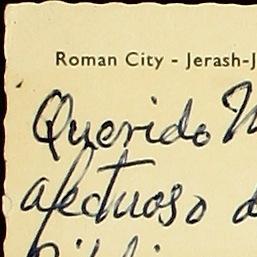 Roman City - Jerash-J
Querido
afectuoso